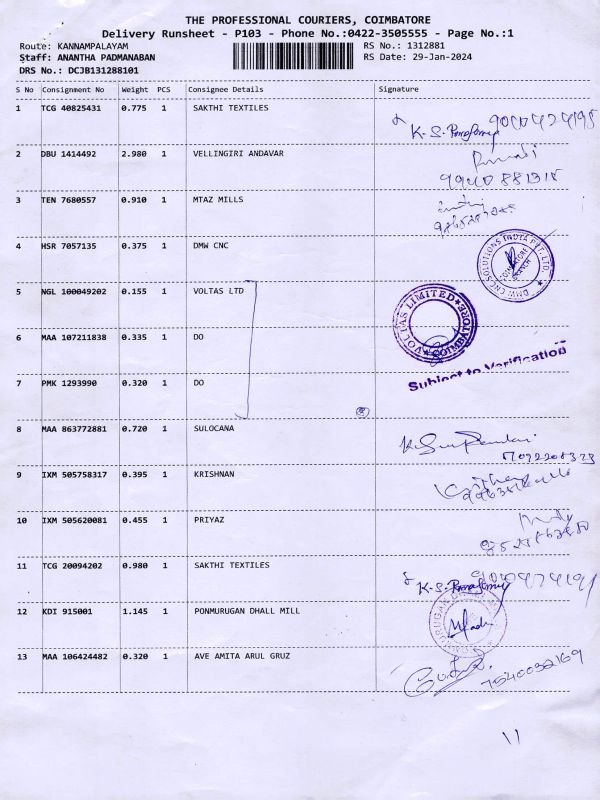 THE PROFESSIONAL COURIERS, COIMBATORE
Delivery Runsheet - P103 - Phone No.:0422-3505555 - Page No.:1
Route: KANNAMPALAYAM RS No.: 1312881
Staff: ANANTHA PADMANABAN RS Date: 29-Jan-2024
DRS No.: DCJB131288101
S No Consignment No Weight PCS Consignee Details Signature
1 TCG 40825431 0.775 1 SAKTHI TEXTILES
K. S.
2 DBU 1414492 2.980 1 VELLINGIRI ANDAVAR
3 TEN 7680557 0.910 1 MTAZ MILLS
4 HSR 7057135 0.375 1 DMW CNC
DMW CNC SOLUTIONS INDIA PVT. LTD.
5 NGL 100049202 0.155 1 VOLTAS LTD
VOLTAS LIMITED COIMBATORE
6 MAA 107211838 0.335 1 DO
Subject to Verification
7 PMK 1293990 0.320 1 DO
8 MAA 863772881 0.720 1 SULOCANA
9 IXM 505758317 0.395 1 KRISHNAN
10 IXM 505620081 0.455 1 PRIYAZ
11 TCG 20094202 0.980 1 SAKTHI TEXTILES
K. S.
12 KDI 915001 1.145 1 PONMURUGAN DHALL MILL
13 MAA 106424482 0.320 1 AVE AMITA ARUL GRUZ
7540032169
11